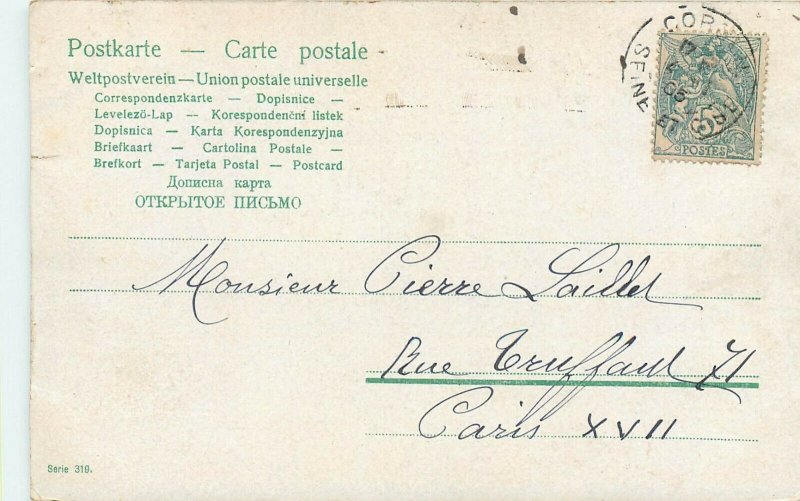 Postkarte — Carte postale
Weltpostverein — Union postale universelle
Correspondenzkarte — Dopisnice —
Levelező-Lap — Korespondenční listek
Dopisnica — Karta Korespondenzyjna
Briefkaart — Cartolina Postale —
Brefkort — Tarjeta Postal — Postcard
Дописна карта
ОТКРЫТОЕ ПИСЬМО
5
POSTES
Monsieur Pierre
Rue Truffaut 71
Paris XVII
Serie 319.